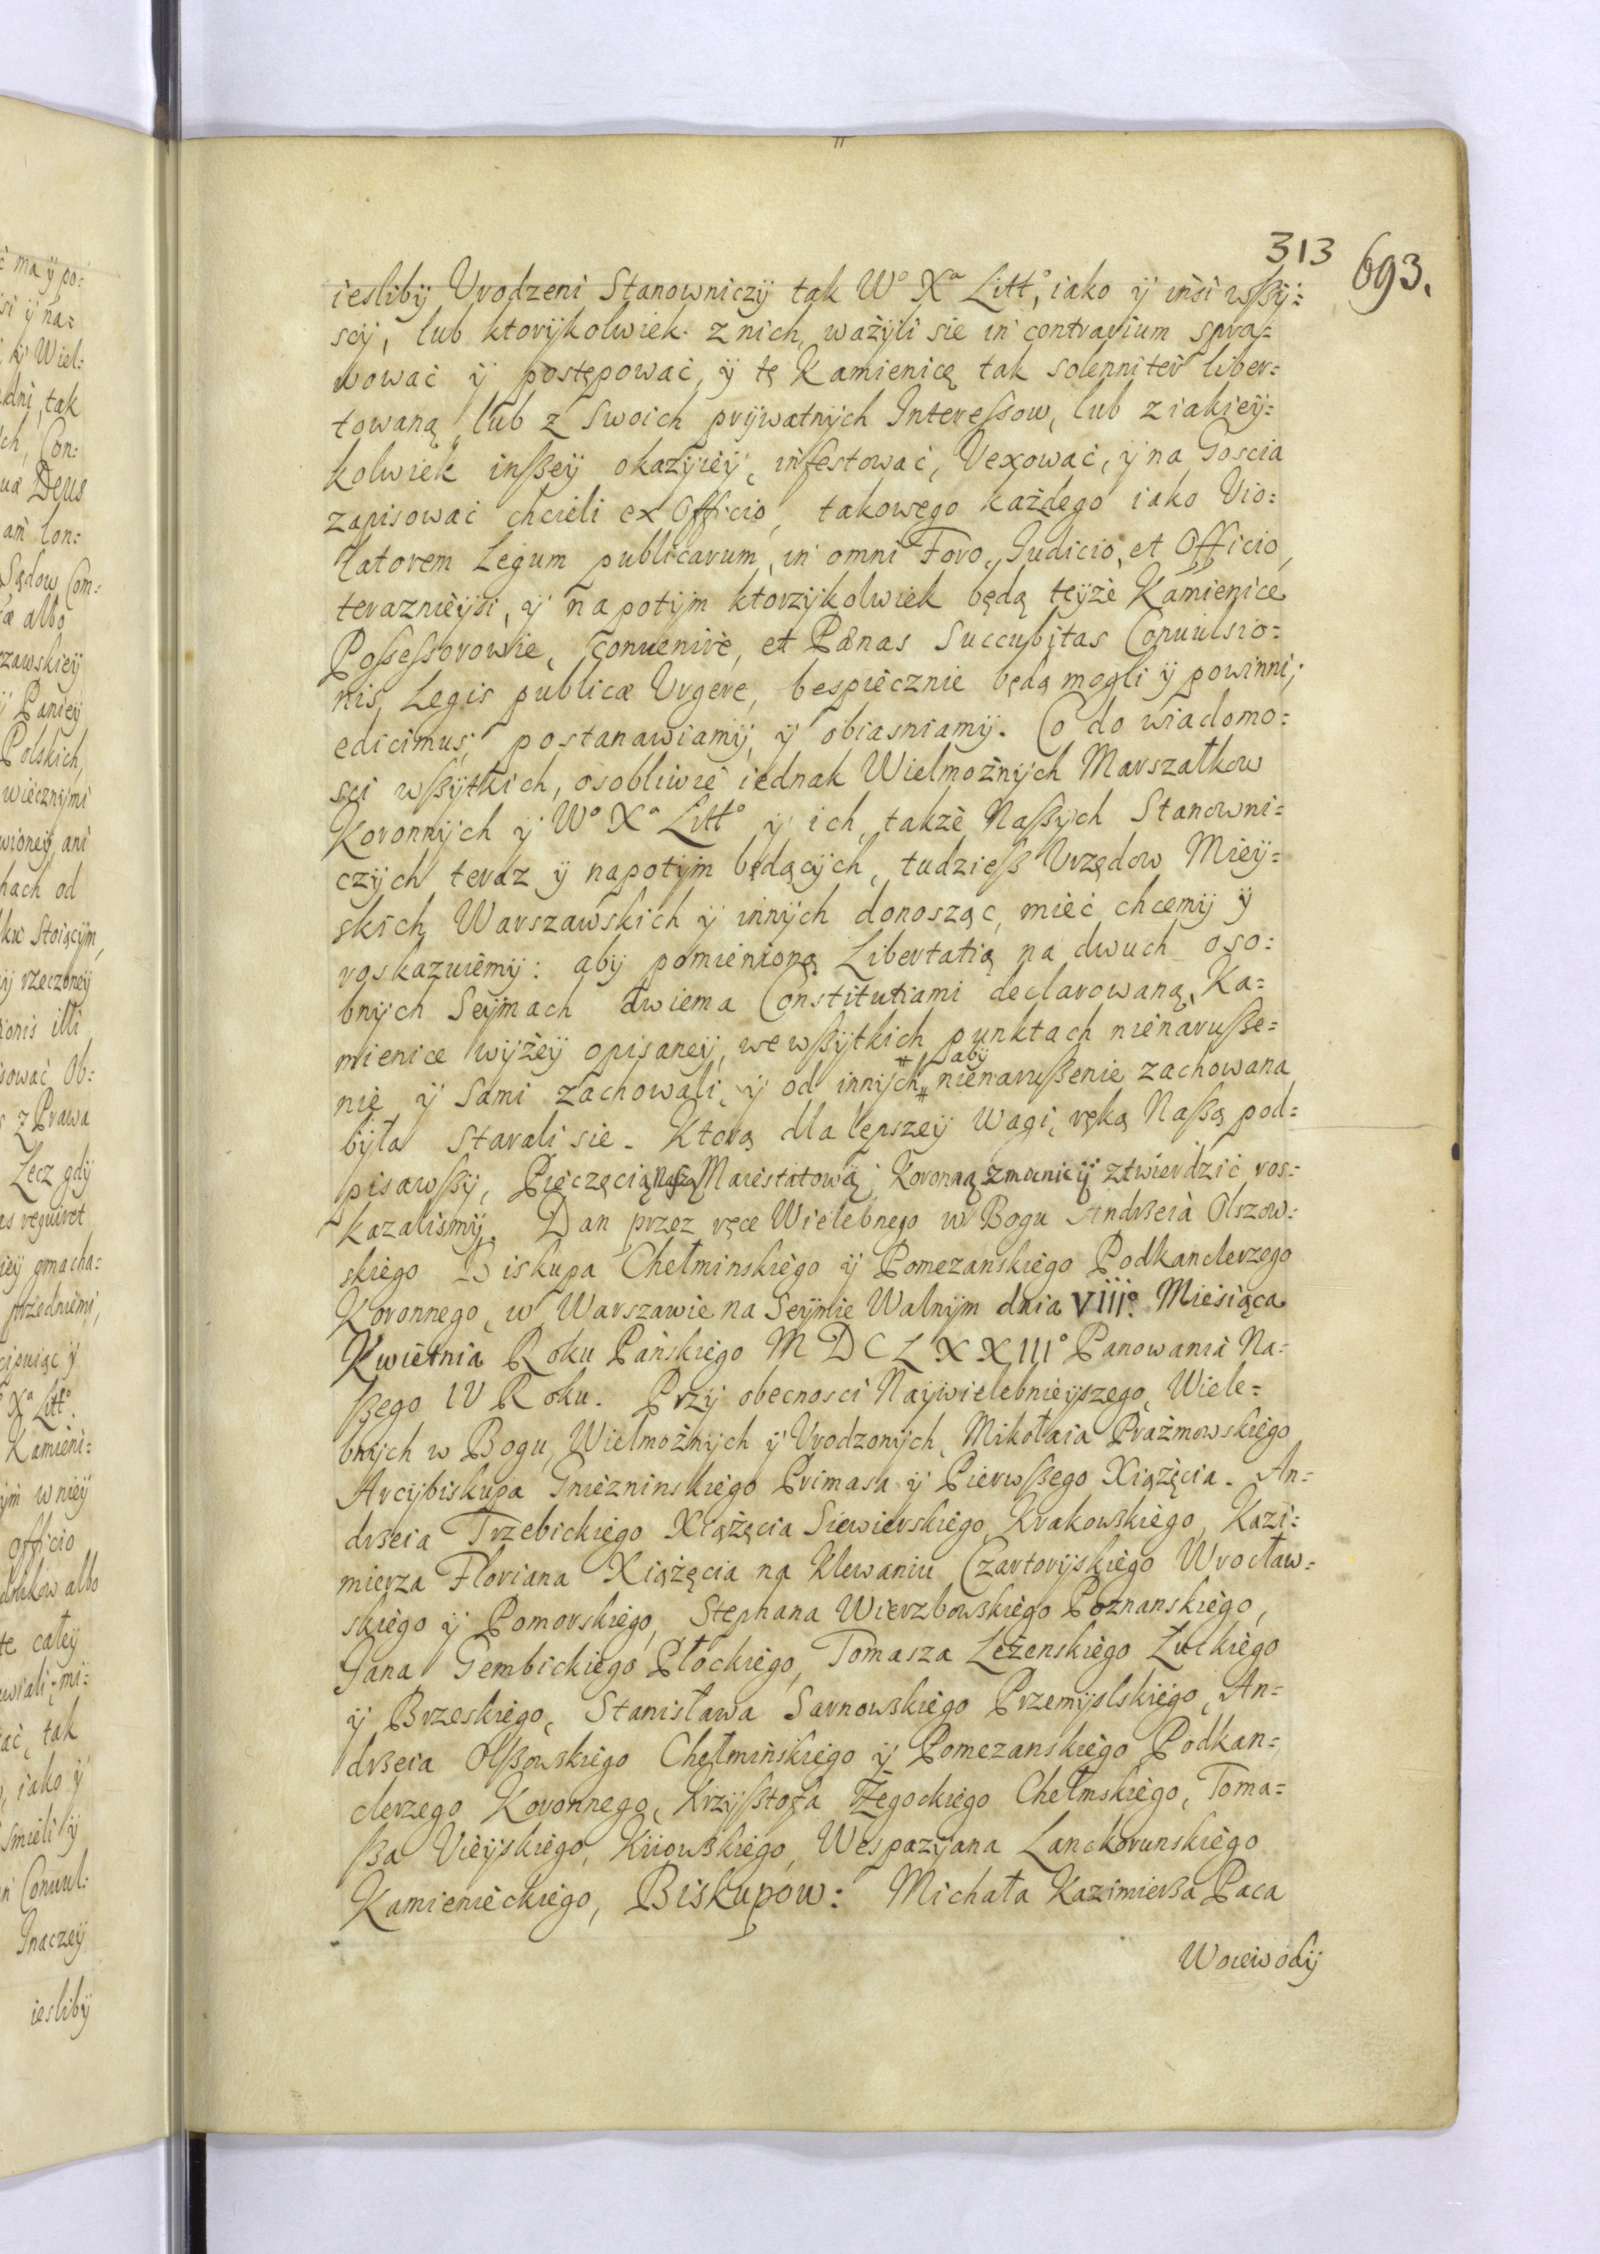 313 693.
iesliby Urodzeni Stanowniczy tak Wº Xª Littº, iako ÿ inśi wßÿ=
scÿ, lub ktorÿkolwiek z nich, ważÿli sie in contrarium spra=
wować ÿ postępować, ÿ tę Kamienicę tak solenniter liber=
towaną, lub z Swoich prÿwatnÿch Interessow, lub z iakieÿ=
kolwiek inßeÿ okazÿieÿ, infestować, Vexować, ÿ na Goscia
zapisować chcieli ex Officio, takowego każdego iako Vio=
latorem Legum publicarum, in omni Foro, Iudicio, et Officio,
teraznieÿsi, ÿ napotÿm ktorzÿkolwiek będą teÿże Kamienice
Possessorowie, Conuenire, et Pænas Succubitas Conuulsio=
nis Legis publicæ Urgere, bespiecznie będą mogli ÿ powinni;
edicimus, postanawiamÿ, ÿ obiasniamÿ. Co do wiadomo=
sci wßÿtkich, osobliwie iednak Wielmożnÿch Marszałkow
Koronnÿch ÿ Wº Xª Littº ÿ ich, także Naßÿch Stanowni=
czÿch teraz ÿ napotÿm będącÿch, tudzieß Urzędow Mieÿ=
skich Warszawskich ÿ innÿch donosząc, mieć chcemÿ ÿ
roskazuiemÿ: abÿ pomienioną Libertatią na dwuch oso=
bnÿch Seÿmach dwiema Constitutiami declarowaną, Ka=
mienice wÿżeÿ opisaneÿ, we wßÿtkich punktach nienaruße=
nie ÿ sami zachowali, ÿ od innÿch abÿ nienarußenie zachowana
bÿła starali sie. Ktorą dla lepszeÿ wagi, ręką Naßą pod=
pisawßÿ, Pieczęcią Naßą Maiestatową, Koronną zmocnicÿ ztwierdzić ros=
kazalismÿ. Dan przez ręce Wielebnego w Bogu Andrzeia Olszow=
skiego Biskupa Chełminskiego ÿ Pomezanskiego Podkanclerzego
Koronnego, w Warszawie na Seÿmie Walnÿm dnia VIIIº Miesiąca
Kwietnia Roku Pańskiego MDCLXXIIIº Panowania Na=
ßego IV Roku. Przÿ obecnosci Naÿwielebnieÿszego, Wiele=
bnÿch w Bogu, Wielmożnÿch ÿ Urodzonÿch, Mikołaia Prażmowskiego
Arcÿbiskupa Gnieznińskiego Primasa ÿ Pierwßego Xiążęcia. An=
drzeia Trzebickiego Xiążęcia Siewierskiego, Krakowskiego, Kazi=
mierza Floriana Xiążęcia na Klewaniu Czartorÿskiego Wrocław=
skiego ÿ Pomorskiego, Stephana Wierzbowskiego Poznanskiego,
Jana Gembickiego Płockiego, Tomasza Leżenskiego Łuckiego
ÿ Brzeskiego, Stanisława Sarnowskiego Przemÿslskiego, An=
drzeia Olßowskiego Chełmińskiego ÿ Pomezanskiego Podkan=
clerzego Koronnego, Krzÿßtofa Żegockiego Chełmskiego, Toma=
ßa Uieÿskiego, Kiiowskiego, Wespazÿana Lanckorunskiego
Kamienieckiego, Biskupow: Michała Kazimierza Paca
Woiewodÿ